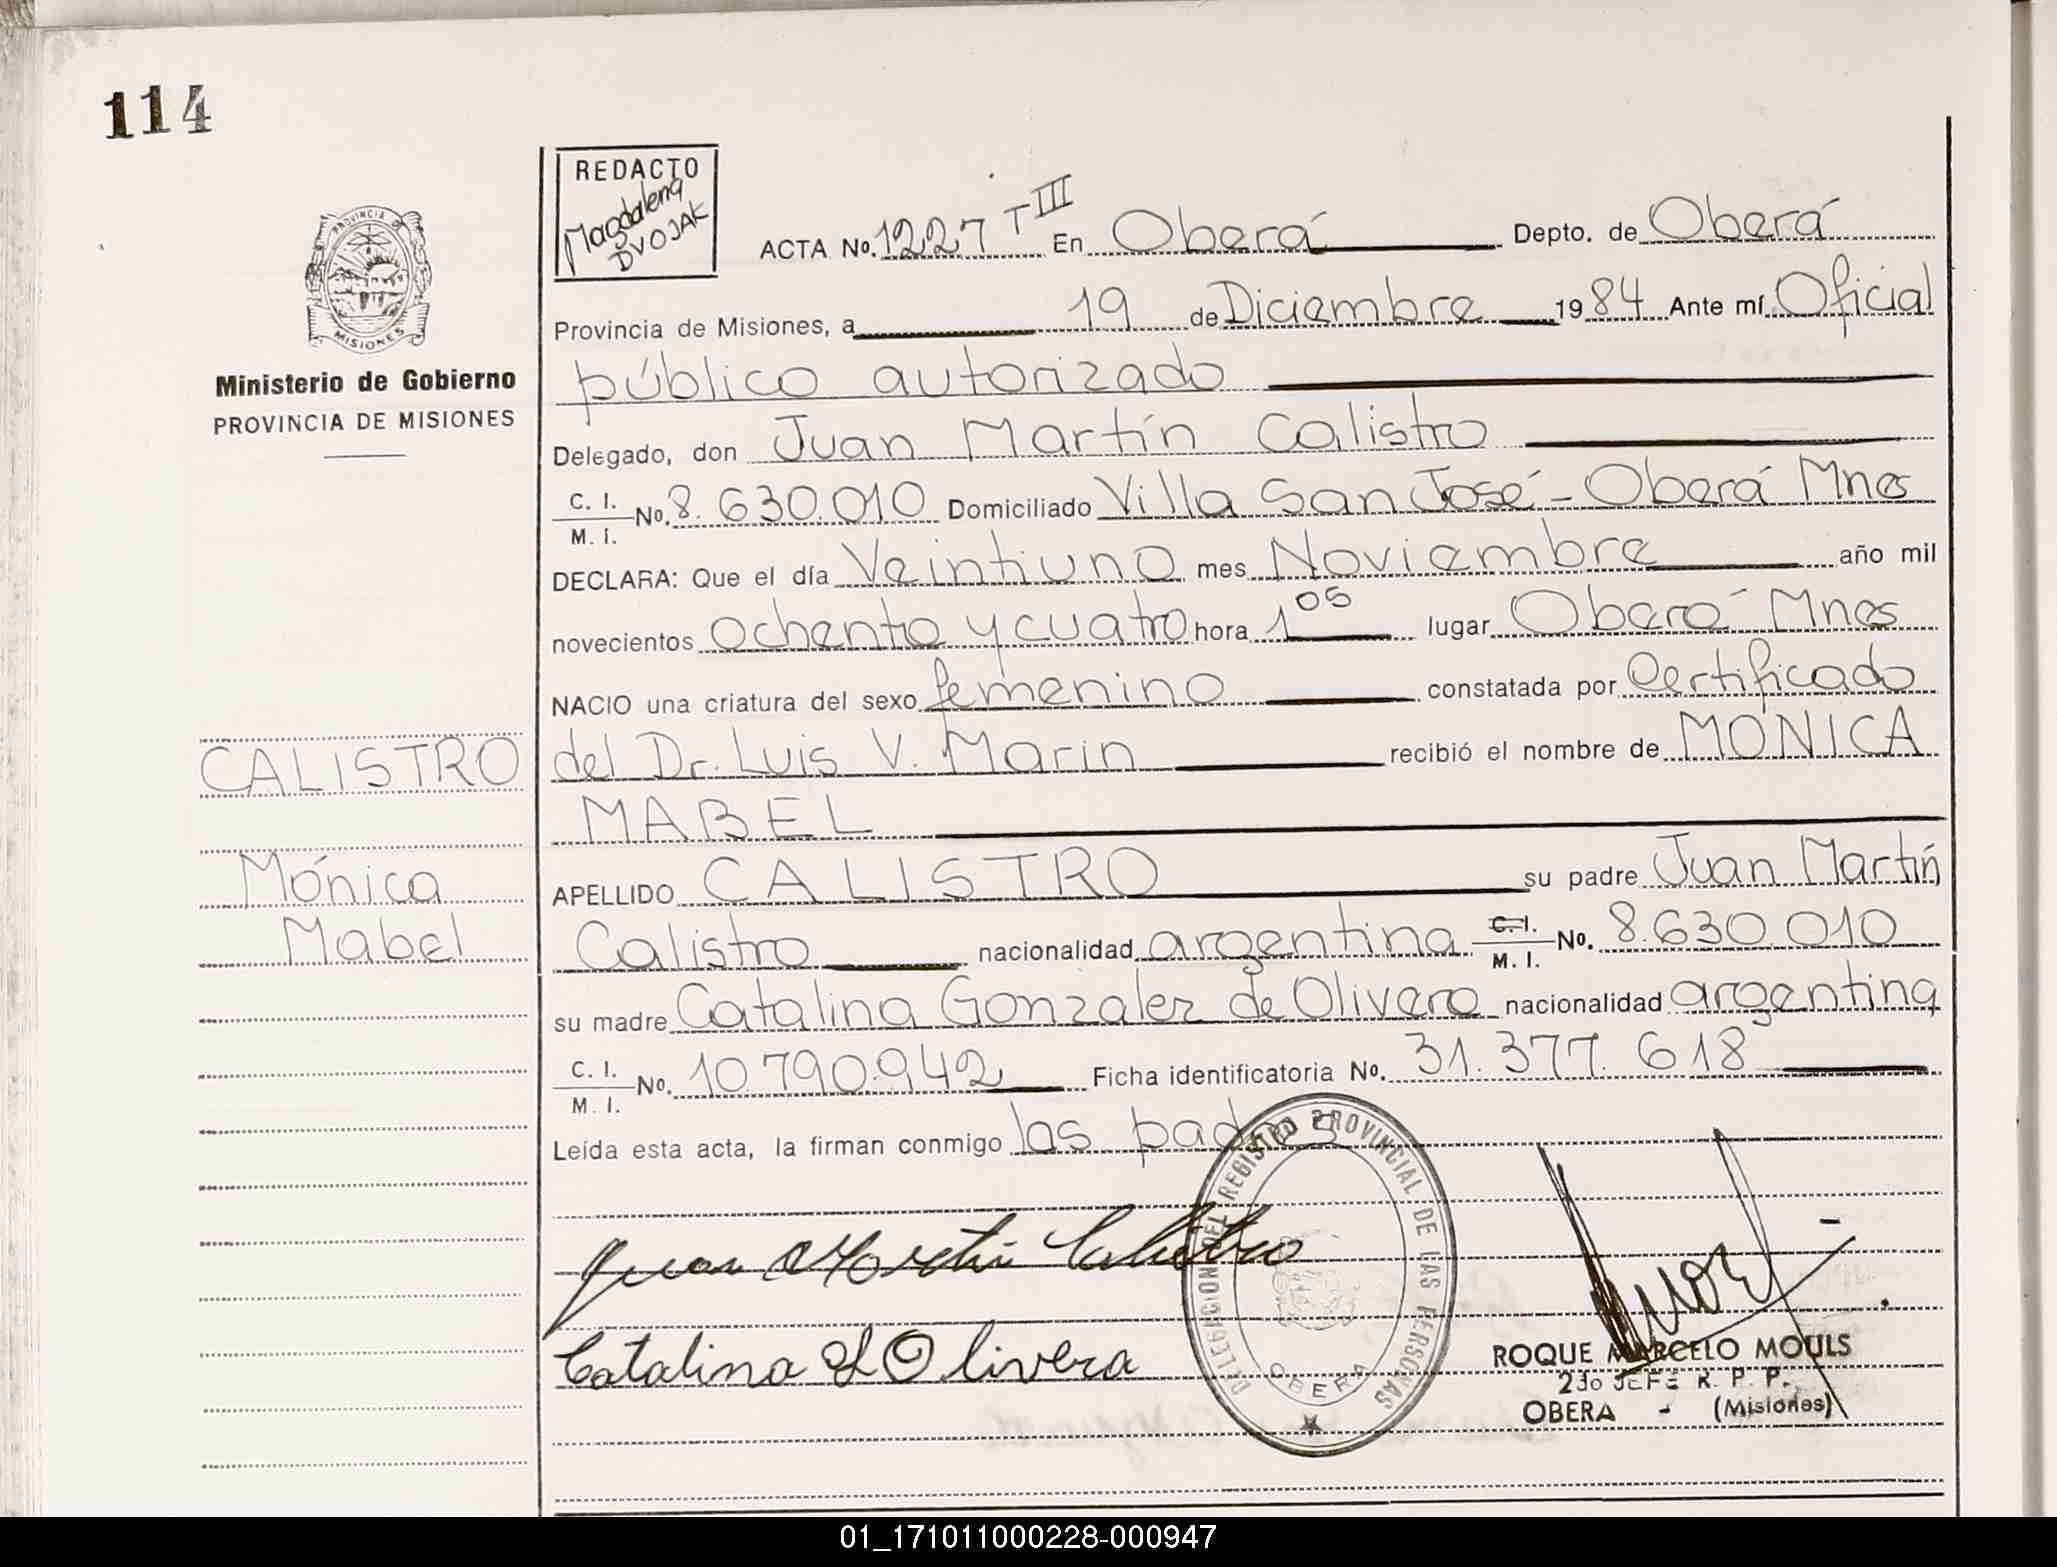 114
REDACTO
Magdalena
DVOJAK
PROVINCIA DE
MISIONES
Ministerio de Gobierno
PROVINCIA DE MISIONES
ACTA No. 1227 T III En Oberá Depto. de Oberá
Provincia de Misiones, a 19 de Diciembre 1984 Ante mí Oficial
público autorizado
Delegado, don Juan Martín Calistro
C. I.
M. I. No. 8.630.010 Domiciliado Villa San José - Oberá Mnes
DECLARA: Que el día Veintiuno mes Noviembre año mil
novecientos ochenta y cuatro hora 1 05 lugar Oberá Mnes
NACIO una criatura del sexo femenino constatada por Certificado
del Dr. Luis V. Marin recibió el nombre de MÓNICA
MABEL
APELLIDO CALISTRO su padre Juan Martín
Calistro nacionalidad argentina C. I.
M. I. No. 8.630.010
su madre Catalina Gonzalez de Olivera nacionalidad argentina
C. I.
M. I. No. 10.790.942 Ficha identificatoria No. 31.377.618
Leída esta acta, la firman conmigo los padres
CALISTRO
Mónica
Mabel
Juan Martín Calistro
Catalina Olivera
DELEGACION DEL REGISTRO PROVINCIAL DE LAS PERSONAS
OBERA
ROQUE MARCELO MOULS
2do JEFE R. P. P.
OBERA - (Misiones)
01_171011000228-000947